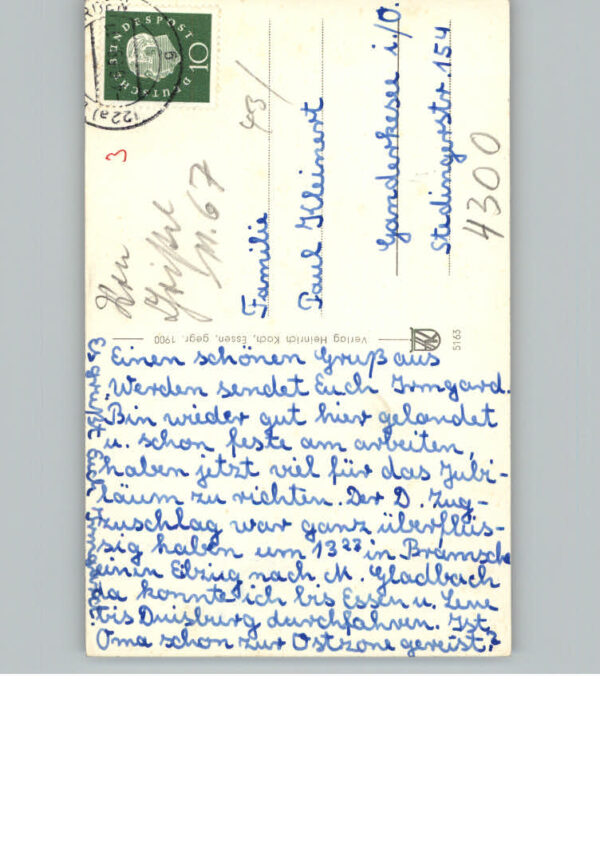 Einen schönen Gruß aus
Werden sendet Euch Irmgard.
Bin wieder gut hier gelandet
u. schon feste am arbeiten,
haben jetzt viel für das Jubi-
läum zu richten. Der D. Zug-
zuschlag war ganz überflüs-
sig haben um 13²² in Bramsche
einen Eilzug nach M. Gladbach
da konnte ich bis Essen u. Lene
bis Duisburg durchfahren. Ist
Oma schon zur Ostzone gereist?
Es grüßt Euch Irmgard.
Familie
Paul Kleinert
Ganderkesee i/O.
Stedingerstr. 154
4300
3
DEUTSCHE BUNDESPOST
10
(22a)
Verlag Heinrich Koch, Essen, gegr. 1900
5163